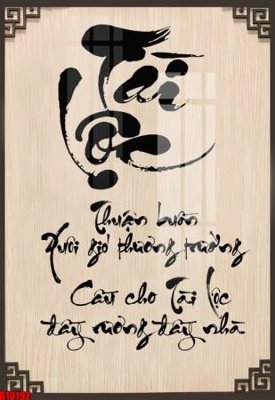 Tài
Lộc
Thuận buồn
Xuôi gió thương trường
Cầu cho Tài Lộc
đầy rương đầy nhà